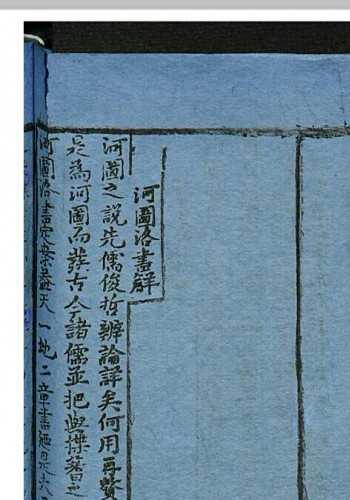 河圖洛書解
河圖之說先儒俊哲辨論詳矣何用再贅
是為河圖而發古今諸儒並把與揲蓍之
河圖洛書定案蓋天一地二章書